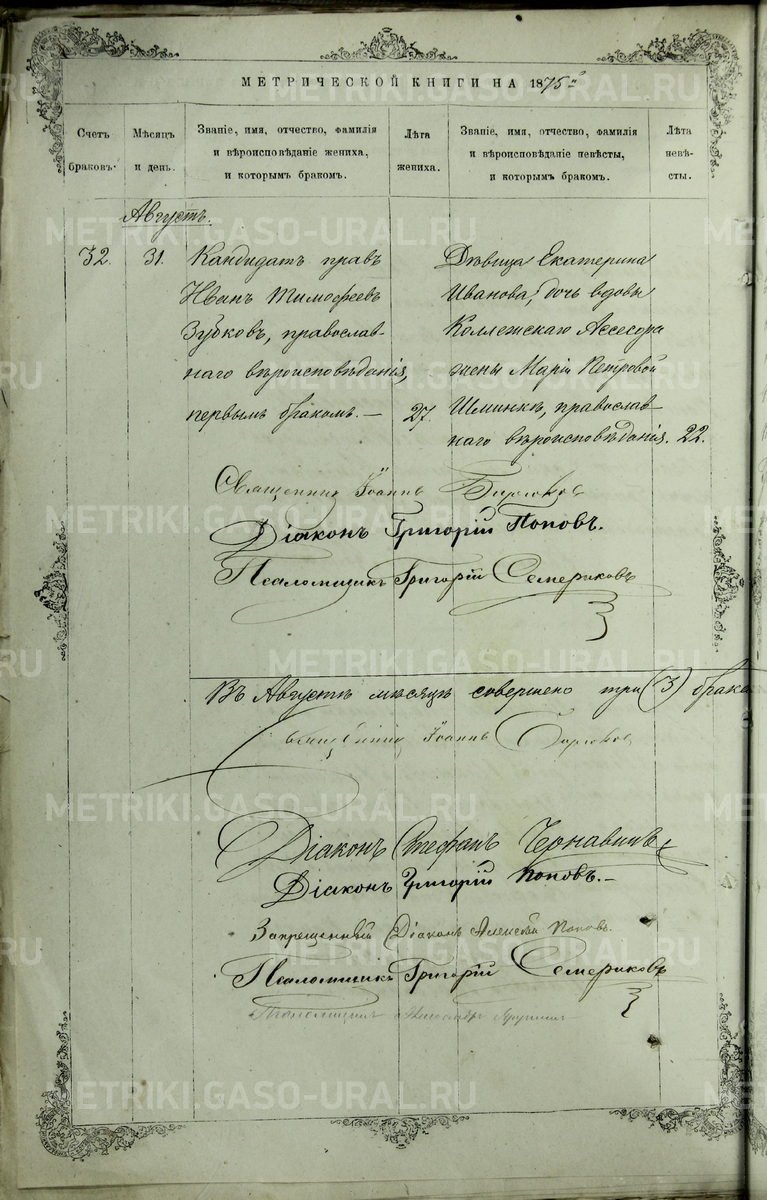 МЕТРИЧЕСКОЙ КНИГИ НА 1875й
Счетъ браковъ.
Мѣсяцъ и день.
Званіе, имя, отчество, фамилія и вѣроисповѣданіе жениха, и которымъ бракомъ.
Лѣта жениха.
Званіе, имя, отчество, фамилія и вѣроисповѣданіе невѣсты, и которымъ бракомъ.
Лѣта невѣсты.
Августъ.
32. 31. Кандидатъ правъ
Иванъ Тимофеевъ
Зубковъ, православ-
наго вѣроисповѣданія,
первымъ бракомъ. — 27.
Дѣвица Екатерина
Иванова, дочь вдовы
Коллежскаго Ассесора
жены Маріи Петровой
Шминке, православ-
наго вѣроисповѣданія. 22.
Священникъ Іоаннъ Бирюковъ
Діаконъ Григорій Поповъ.
Псаломщикъ Григорій Семериковъ
Въ Августѣ мѣсяцѣ совершено три (3) брака
Священникъ Іоаннъ Бирюковъ
Діаконъ Стефанъ Чернавинъ
Діаконъ Григорій Поповъ. —
Запрещенный Діаконъ Алексѣй Поповъ.
Псаломщикъ Григорій Семериковъ
Псаломщикъ Александръ
METRIKI.GASO-URAL.RU